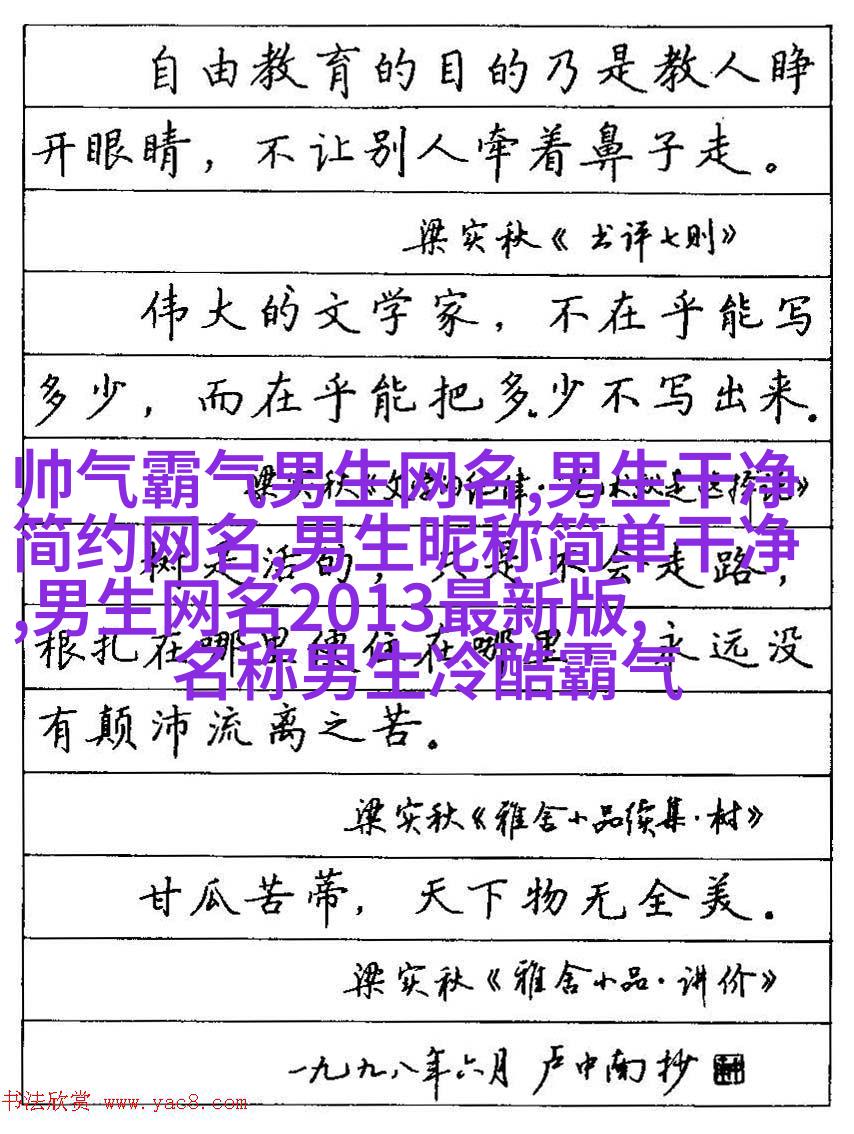 自由教育的目的乃是教人睁
开眼睛，不让别人牵着鼻子走。
梁实秋《书评七则》
伟大的文学家，不在乎能写
多少，而在乎能把多少不写出来.
梁实秋《文学的纪律·
帅气霸气男生网名,男生干净
简约网名,男生昵称简单干净
,男生网名2013最新版,
名称男生冷酷霸气
树是活的，只是不会走路，
根扎在哪里便住在哪里，永远没
有颠沛流离之苦。
梁实秋《雅舍小品续集·树》
甘瓜苦蒂，天下物无全美.
梁实秋《雅舍小品·讲价》
一九九八年六月 卢中南抄
书法欣赏 www.yac8.com